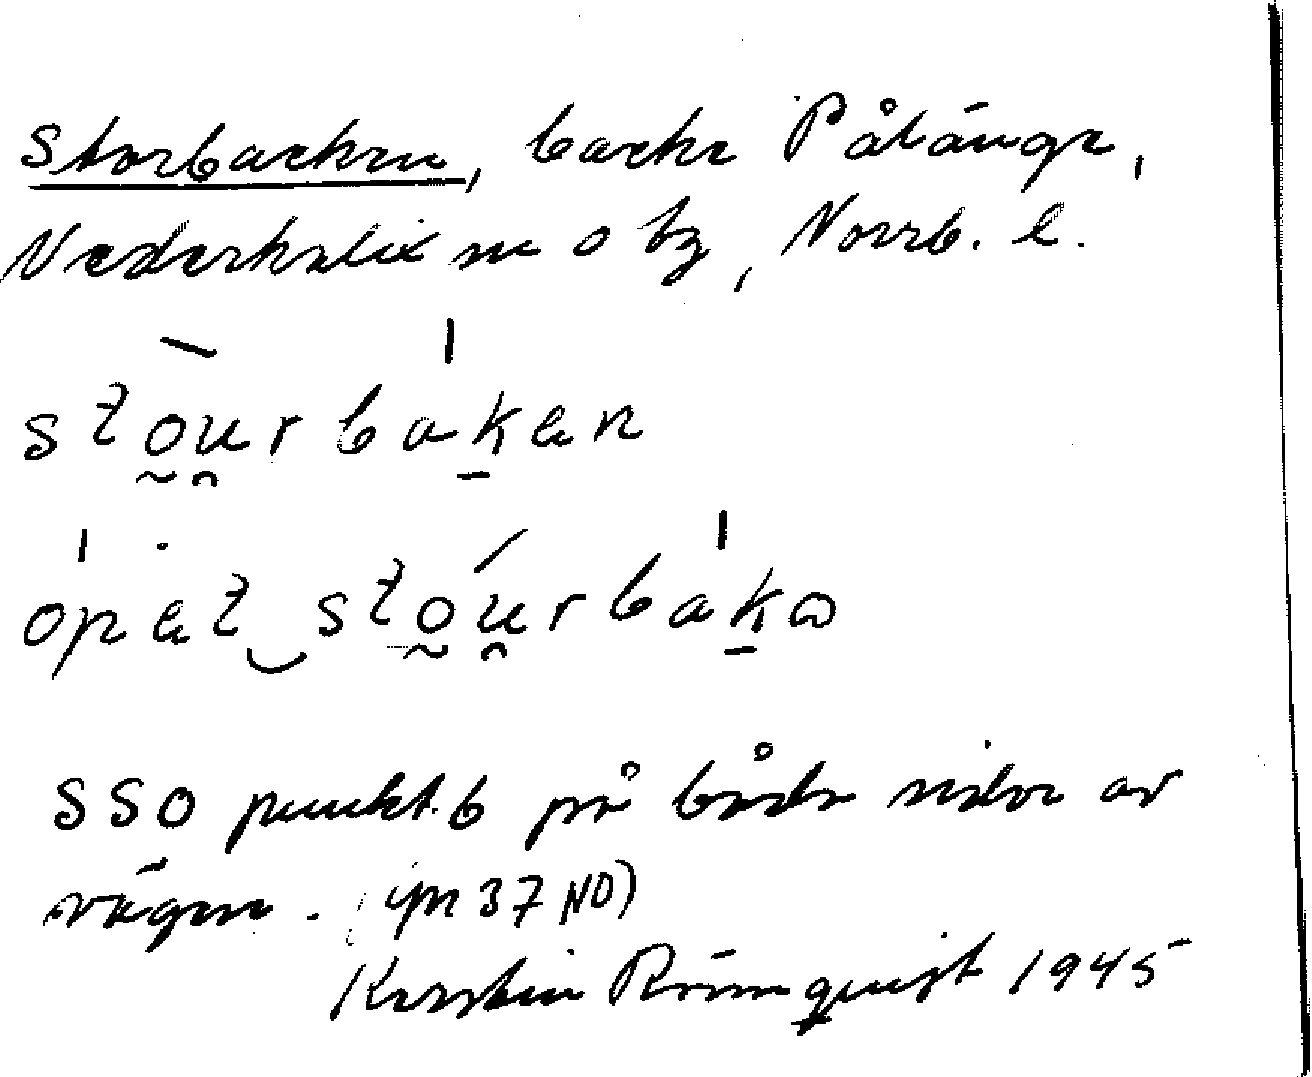 Storbacken, backe Pålänge,
Nederkalix sn o tg, Norrb. l.
stòurbakan
opat stóurbakα
SSO punkt.b på båda sidor av
vägen. (ym 37 NO)
Kerstin Rönnquist 1945